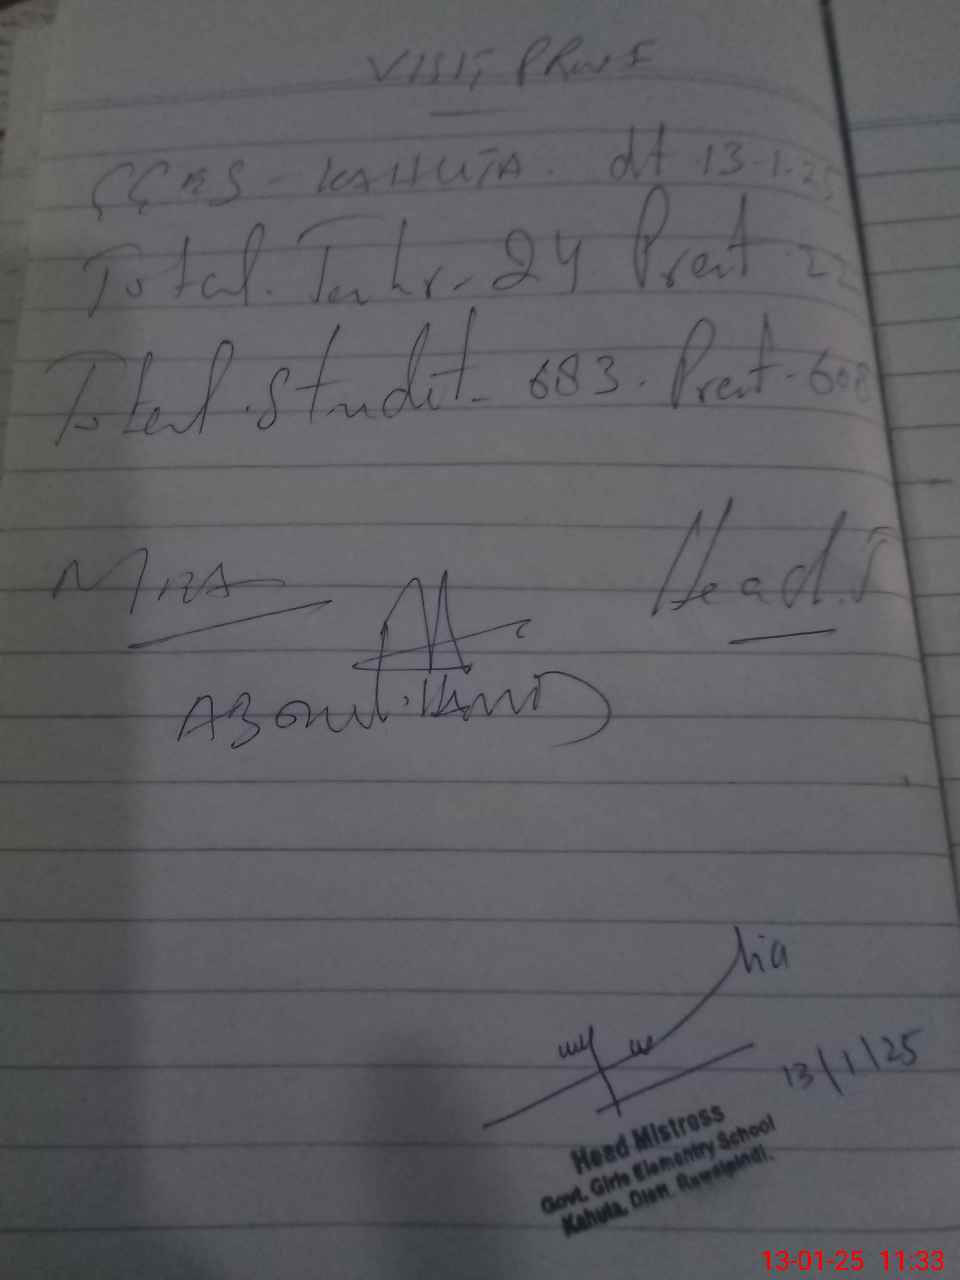 VISIT PROOF
GGES - KAHUTA. dt 13-1-25
Total. Techr. 24 Prent 22
Total. Studit - 683. Prent - 608
MEA Head.T
Abdul. Hamid
13/1/25
Head Mistress
Govt. Girls Elementry School
Kahuta, Distt. Rawalpindi.
13-01-25 11:33